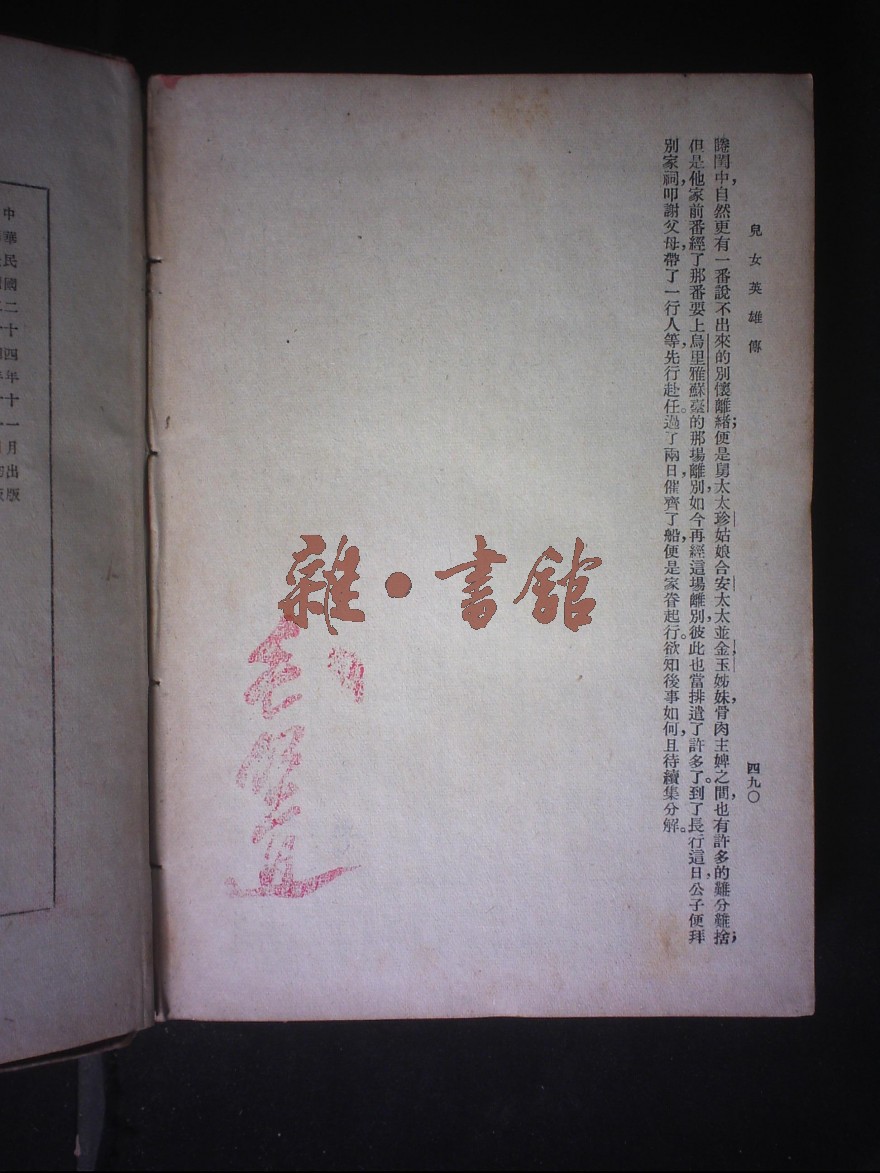 兒女英雄傳
四九〇
睠閨中,自然更有一番說不出來的別懷離緒;便是舅太太珍姑娘合安太太並金,玉姊妹骨肉主婢之間,也有許多的難分難捨;
但是他家前番經了那番要上烏里雅蘇臺的那場離別,如今再經這場離別,彼此也當排遣了許多了。到了長行這日,公子便拜
別家祠,叩謝父母,帶了一行人等,先行赴任。過了兩日,催齊了船,便是家眷起行。欲知後事如何,且待續集分解。
雜·書館
中華民國二十四年十一月出版